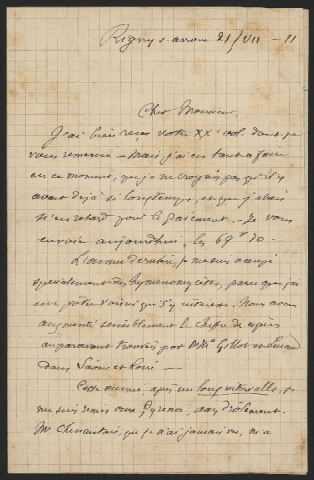 Rigny s. arroux 21/VII - 11
Cher Monsieur,
J'ai bien reçu votre XXe vol. dont je
vous remercie - mais j'ai eu tant à faire
en ce moment, que je ne croyais pas qu'il y
avait déjà si longtemps, et que j'étais
si en retard pour le paiement. - Je vous
envoie aujourd'hui les 69f 70 -
L'année dernière, je me suis occupé
spécialement des hymenomycètes, parce que j'ai
un prêtre voisin qui s'y intéresse. Nous avons
augmenté sensiblement le chiffre de espèces
auparavant trouvées par MM. Gillot et Lucand
dans Saône et Loire -
Cette année après un long intervalle, je
me suis remis aux Pyrenos, assez drôlement.
Mr que je n'ai jamais vu, m'a